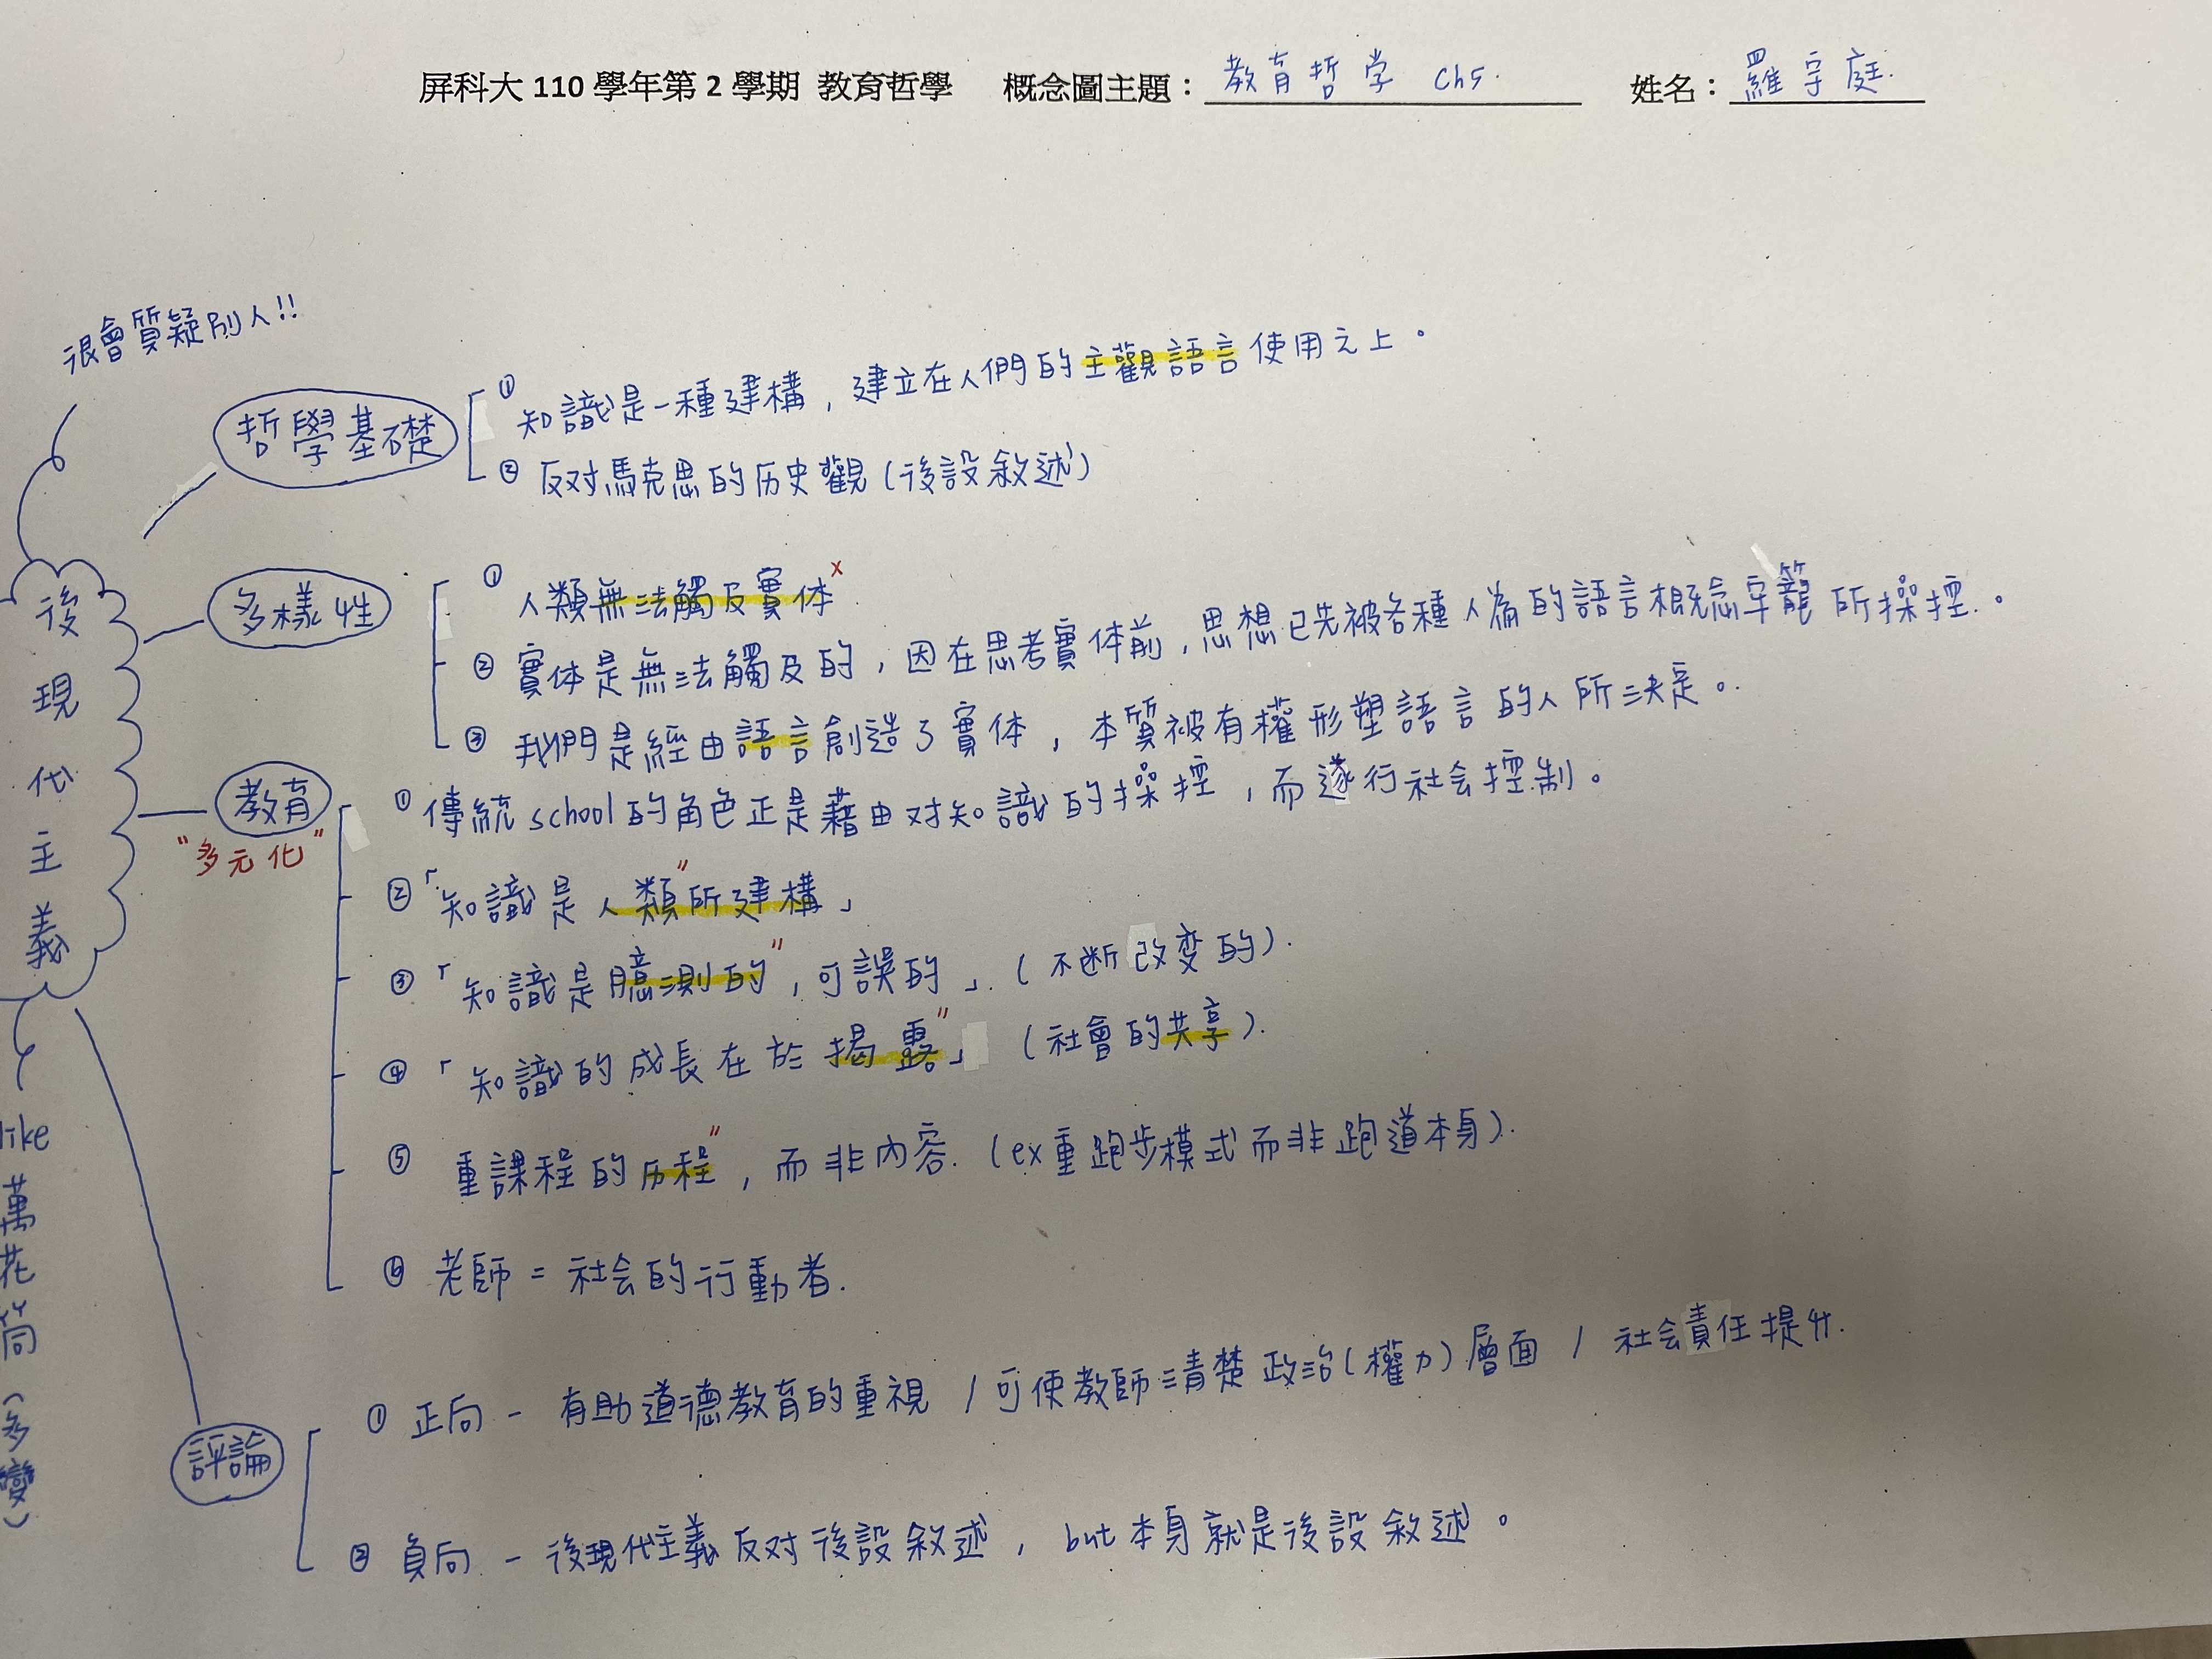 屏科大 110 學年第 2 學期 教育哲學 概念圖主題：教育哲学 ch5. 姓名：羅宇庭.
很會質疑別人!!
後現代主義
like 萬花筒(多變)
哲學基礎
① 知識是一種建構，建立在人們的主觀語言使用之上。
② 反对馬克思的历史觀(後設敘述)
多樣性
① 人類無法觸及實体x
② 實体是無法觸及的，因在思考實体前，思想已先被各種人為的語言概念牢籠所操控.。
③ 我們是經由語言創造了實体，本質被有權形塑語言的人所決定。
教育
"多元化"
① 傳統school的角色正是藉由对知識的操控，而遂行社会控制。
② 「知識是人類"所建構」
③ 「知識是臆測的"，可誤的」.(不断改变的).
④ 「知識的成長在於揭露"」(社會的共享).
⑤ 重課程的历程"，而非內容.(ex重跑步模式而非跑道本身).
⑥ 老師=社会的行動者.
評論
① 正向-有助道德教育的重視/可使教師清楚政治(權力)層面/社会責任提升.
② 負向-後現代主義反对後設敘述，but本身就是後設敘述。